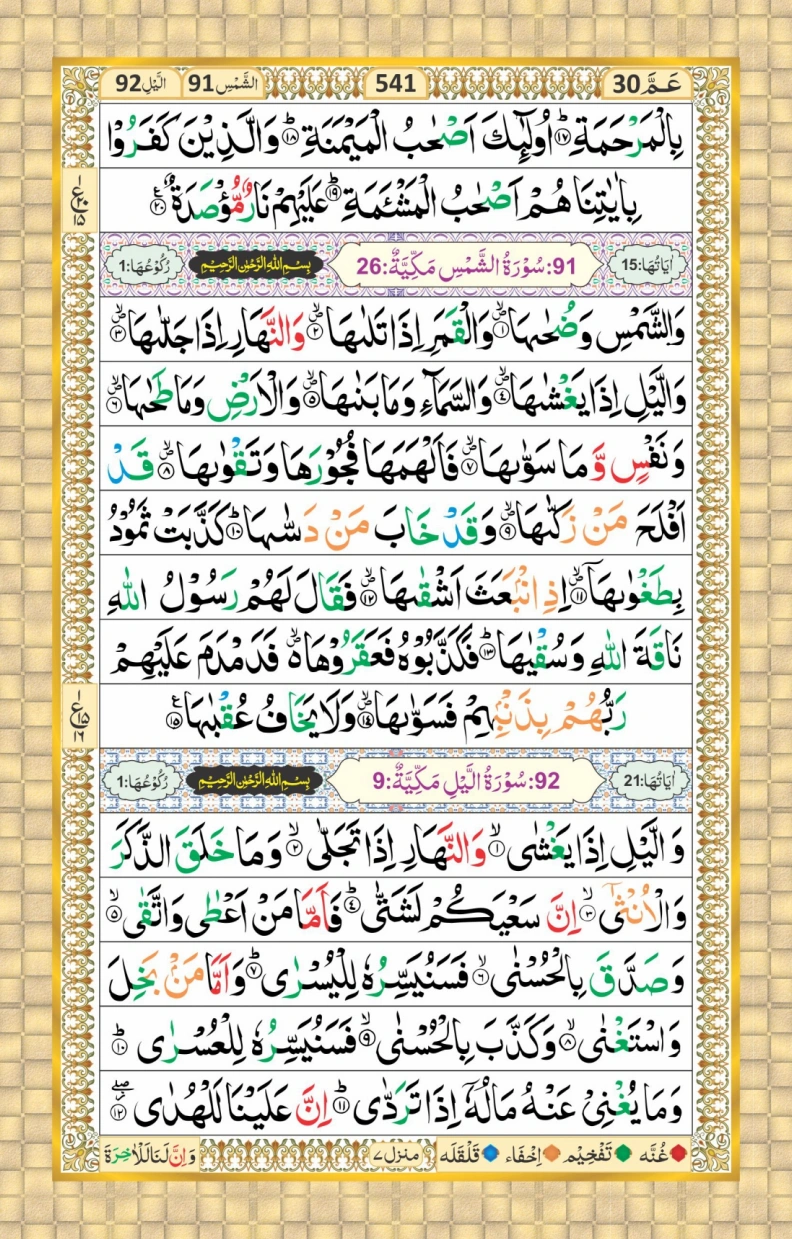 عَمَّ 30
541
الشَّمْسِ 91
الَّيْلِ 92
بِالْمَرْحَمَةِ ؕ۝۱۷ اُولٰٓئِكَ اَصْحٰبُ الْمَيْمَنَةِ ؕ۝۱۸ وَالَّذِيْنَ كَفَرُوْا
بِاٰيٰتِنَا هُمْ اَصْحٰبُ الْمَشْـَٔمَةِ ؕ۝۱۹ عَلَيْهِمْ نَارٌ مُّؤْصَدَةٌ ۝۲۰
ع
۲۰
۱۵
اٰيَاتُهَا:15
91:سُوْرَةُ الشَّمْسِ مَكِّيَّةٌ:26
بِسْمِ اللّٰهِ الرَّحْمٰنِ الرَّحِيْمِ
رُكُوْعُهَا:1
وَالشَّمْسِ وَضُحٰىهَا ۝۱ وَالْقَمَرِ اِذَا تَلٰىهَا ۝۲ وَالنَّهَارِ اِذَا جَلّٰىهَا ۝۳
وَالَّيْلِ اِذَا يَغْشٰىهَا ۝۴ وَالسَّمَآءِ وَمَا بَنٰىهَا ۝۵ وَالْاَرْضِ وَمَا طَحٰىهَا ۝۶
وَنَفْسٍ وَّمَا سَوّٰىهَا ۝۷ فَاَلْهَمَهَا فُجُوْرَهَا وَتَقْوٰىهَا ۝۸ قَدْ
اَفْلَحَ مَنْ زَكّٰىهَا ۝۹ وَقَدْ خَابَ مَنْ دَسّٰىهَا ؕ۝۱۰ كَذَّبَتْ ثَمُوْدُ
بِطَغْوٰىهَاۤ ۝۱۱ اِذِ انْۢبَعَثَ اَشْقٰىهَا ۝۱۲ فَقَالَ لَهُمْ رَسُوْلُ اللّٰهِ
نَاقَةَ اللّٰهِ وَسُقْيٰهَا ؕ۝۱۳ فَكَذَّبُوْهُ فَعَقَرُوْهَا ۙ فَدَمْدَمَ عَلَيْهِمْ
رَبُّهُمْ بِذَنْۢبِهِمْ فَسَوّٰىهَا ۝۱۴ وَلَا يَخَافُ عُقْبٰهَا ۝۱۵
ع
۱۵
۱۶
اٰيَاتُهَا:21
92:سُوْرَةُ الَّيْلِ مَكِّيَّةٌ:9
بِسْمِ اللّٰهِ الرَّحْمٰنِ الرَّحِيْمِ
رُكُوْعُهَا:1
وَالَّيْلِ اِذَا يَغْشٰى ۙ۝۱ وَالنَّهَارِ اِذَا تَجَلّٰى ۙ۝۲ وَمَا خَلَقَ الذَّكَرَ
وَالْاُنْثٰۤى ۙ۝۳ اِنَّ سَعْيَكُمْ لَشَتّٰى ؕ۝۴ فَاَمَّا مَنْ اَعْطٰى وَاتَّقٰى ۙ۝۵
وَصَدَّقَ بِالْحُسْنٰى ۙ۝۶ فَسَنُيَسِّرُهٗ لِلْيُسْرٰى ؕ۝۷ وَاَمَّا مَنْۢ بَخِلَ
وَاسْتَغْنٰى ۙ۝۸ وَكَذَّبَ بِالْحُسْنٰى ۙ۝۹ فَسَنُيَسِّرُهٗ لِلْعُسْرٰى ؕ۝۱۰
وَمَا يُغْنِيْ عَنْهُ مَالُهٗۤ اِذَا تَرَدّٰى ؕ۝۱۱ اِنَّ عَلَيْنَا لَلْهُدٰى ۝۱۲
غُنَّه تَفْخِيْم اِخْفَاء قَلْقَلَه
منزل ۷
وَاِنَّ لَنَا لَلْاٰخِرَةَ